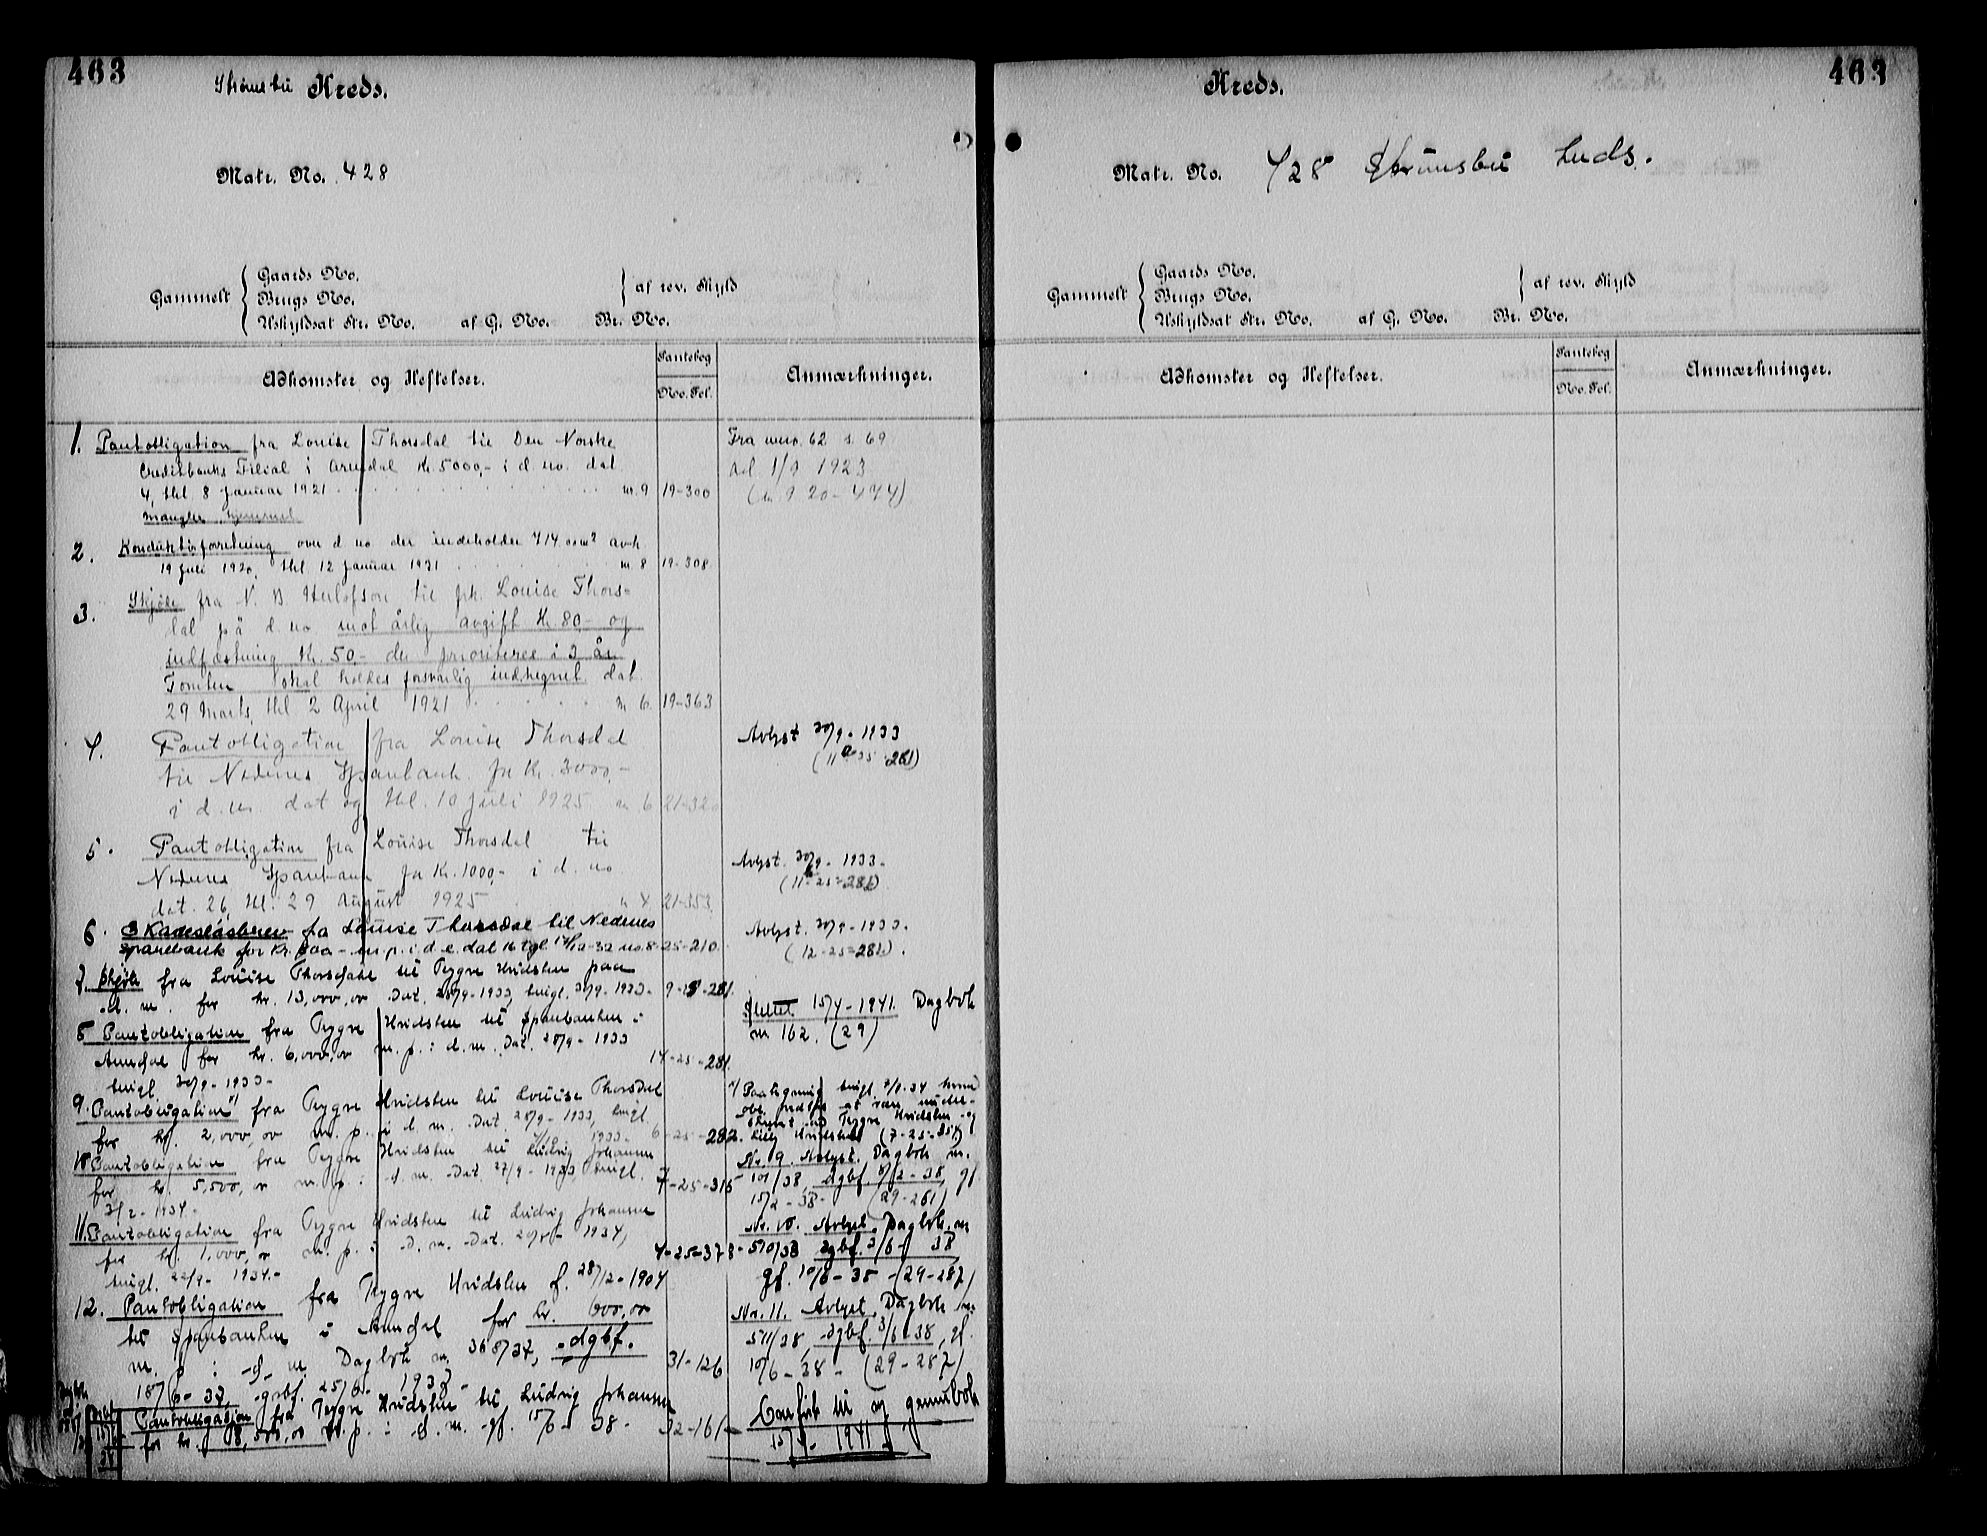 463
Strømsbu Kreds.
Matr. No. 428
Gammelt
Gaards No.
Brugs No.
Uskyldsat Str. No. af G. No. Br. No.
af rev. Skyld
Adkomster og Heftelser.
Pantebog
No. Fol.
Anmærkninger.
1. Pantobligation fra Louise Thorsdal til Den Norske
Creditbanks Filial i Arendal Kr. 5000,- i d. no. dat.
4, thl 8 Januar 1921 nr. 9 19-300
mangler hjemmel
Fra 62 s. 69
Avl 1/9 1923
20-474)
2. Konduktørforretning over d no der indeholder 414 m² avh.
19 Juli 1920, thl 12 Januar 1921 nr 8 19-308
3. Skjøde fra N. B. Herlofson til frk. Louise Thors-
dal på d. no mot årlig avgift Kr 80,- og
indfæstning Kr. 50,- der prioriteres i 3 år
Tomten skal holdes forsvarlig indhegnet dat.
29 Marts, thl 2 April 1921 nr 6 19-363
4. Pantobligation fra Louise Thorsdal
til Nedenes Sparebank for Kr. 3000,-
i d. no. dat og thl. 10 Juli 1925 nr 6 21-320
Avlyst 30/9 - 1933
5. Pantobligation fra Louise Thorsdal til
Nedenes Sparebank for Kr. 1000,- i d. no
dat. 26, thl. 29 August 1925 nr 4 21-353
Avlyst. 30/9 - 1933.
(11-25-281)
6. Skadesløsbrev fra Louise Thorsdal til Nedenes
Sparebank for Kr. m. p. i d. e. dat 16 tgl. 17/12-32 no. 8 25-210
Avlyst. 30/9 - 1933.
(12-25-281).
7. Skjøte fra Louise Thorsdal til Trygve Hvidsten paa
d. m. for kr. 13,000,00 Dat. 28/9-1933, tingl. 30/9-1933- 9-25-281.
8. Pantobligation fra Trygve Hvidsten til Sparebanken i
Arendal for kr. 6,000,00 m. p. i d. m. Dat. 28/9-1933
tingl. 30/9-1933- 14-25-281.
Slettet 15/4-1941. Dagbok
nr 162. (29)
9. Pantobligation fra Trygve Hvidsten til Louise Thorsdal
for kr. 2,000,00 m. p. i d. m. Dat. 28/9-1933, tingl.
1933- 6-25-282.
Paategning tingl. 34 hvor
Trygve Hvidsten og
Hvidsten
10. Pantobligation fra Trygve Hvidsten til Ludvig Johansen
for kr. 5,500,00 m. p. i d. m. Dat. 27/9-1933, tingl.
3/2-1934- 7-25-315
Nr. 9. Avlyst. Dagbok nr.
101/38, dgbf. 8/2-38, gf.
15/2-38- (29-261)
11. Pantobligation fra Trygve Hvidsten til Ludvig Johansen
for kr. 1,000,00 m. p. i d. m. Dat. 20/8-1934,
tingl. 22/9-1934.- 4-25-378-
Nr. 10. Avlyst. Dagbok nr
510/38 dgbf. 3/6 38
gf. 10/6-38-(29-287)
12. Pantobligation fra Trygve Hvidsten f. 28/12-1904
til Sparebanken i Arendal for kr. 600,00
m. p. i d. m. Dagbok nr 368/37, dgbf.
18/6-37, grbf. 25/6-1937- 31-126
Nr. 11. Avlyst. Dagbok nr.
511/38, dgbf. 3/6-38, gf.
10/6-38- (29-287)
Pantobligasjon fra Trygve Hvidsten til Ludvig Johansen
for kr. 8,500,00 m. p. i d. m. gf. 15/6-38- 32-161
Overført til ny grunnbok
15/4-1941
463
Kreds.
Matr. No. 428 Strømsbu Kreds.
Gammelt
Gaards No.
Brugs No.
Uskyldsat Str. No. af G. No. Br. No.
af rev. Skyld
Adkomster og Heftelser.
Pantebog
No. Fol.
Anmærkninger.